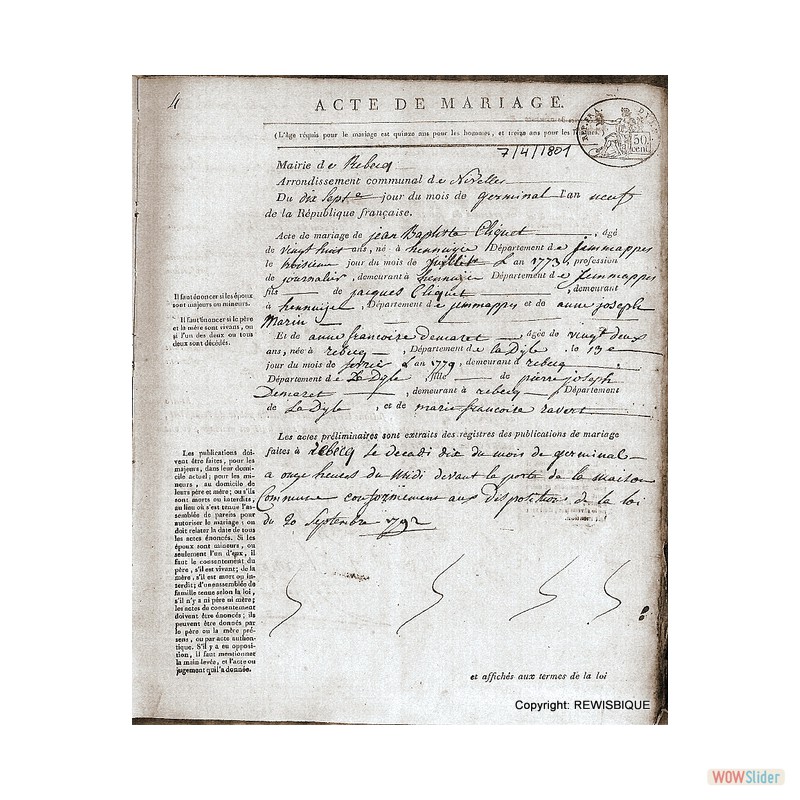 4
ACTE DE MARIAGE.
(L'âge réquis pour le mariage est quinze ans pour les hommes, et treize ans pour les
7/4/1801
50
cent
Mairie de Rebecq
Arrondissement communal de Nivelles
Du dix Septe jour du mois de germinal l'an neuf
de la République française.
Acte de mariage de jean Baptiste Cliquet , âgé
de vingt huit ans, né à hennuijer Département de jemmappes
le troisieme jour du mois de juillet L an 1773, profession
de journalier, demeurant à hennuijer Département de Jemmappes
fils de jacques Cliquet , demeurant
à hennuijer, Département de jemmappes et de anne joseph
Marin
Et de anne francoise Demaret âgée de vingt deux
ans, née à rebecq , Département de la Dyle , le 13 e
jour du mois de fevrier L an 1779, demeurant à rebecq
Département de La Dyle , fille de pierre joseph
Demaret , demeurant à rebecq , Département
de La Dyle , et de marie francoise ravert
Les actes préliminaires sont extraits des registres des publications de mariage
faites à rebecq le decadi dix du mois de germinal
a onze heures du Midi devant la porte de la maison
Commune conformement aux Dispositions de la loi
du 20 Septembre 1792
Il faut énoncer si les époux
sont majeurs ou mineurs.
Il faut énoncer si le père
et la mère sont vivans, ou
si l'un des deux ou tous
deux sont décédés.
Les publications doi-
vent être faites, pour les
majeurs, dans leur domi-
cile actuel; pour les mi-
neurs, au domicile de
leurs père et mère; ou s'ils
sont morts ou interdits,
au lieu où s'est tenue l'as-
semblée de parens pour
autoriser le mariage; on
doit relater la date de tous
les actes énoncés. Si les
époux sont mineurs, ou
seulement l'un d'eux, il
faut le consentement du
père, s'il est vivant; de la
mère, s'il est mort ou in-
terdit; d'une assemblée de
famille tenue selon la loi,
s'il n'y a ni père ni mère;
les actes de consentement
doivent être énoncés; ils
peuvent être donnés par
le père ou la mère pré-
sens, ou par acte authen-
tique. S'il y a eu opposi-
tion, il faut mentionner
la main-levée, et l'acte ou
jugement qui l'a donnée.
et affichés aux termes de la loi
Copyright: REWISBIQUE
WOWSlider